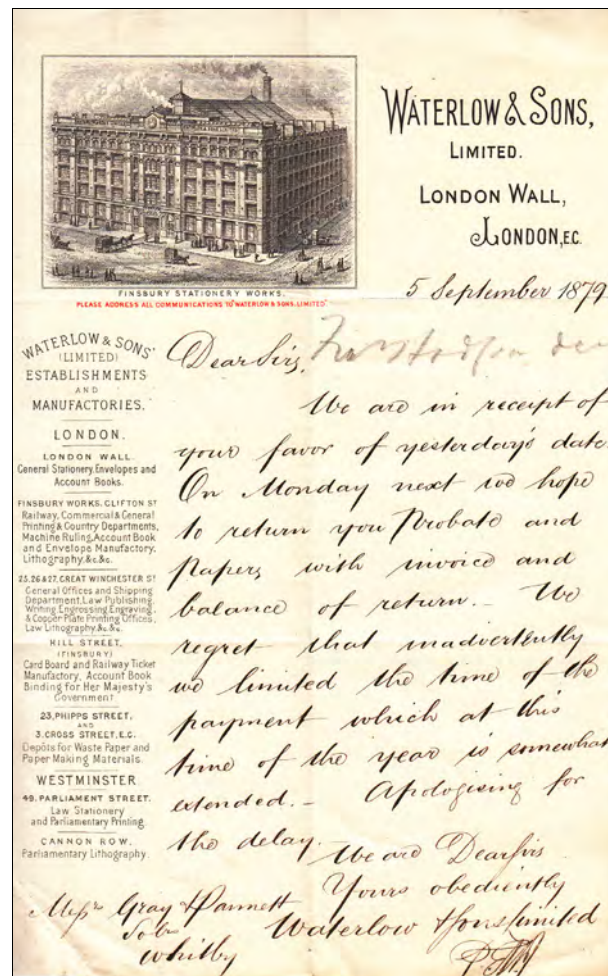 WATERLOW & SONS,
LIMITED.
LONDON WALL,
LONDON, E.C.
FINSBURY STATIONERY WORKS.
PLEASE ADDRESS ALL COMMUNICATIONS TO "WATERLOW & SONS, LIMITED"
5 September 1879
WATERLOW & SONS'
(LIMITED)
ESTABLISHMENTS
AND
MANUFACTORIES.
LONDON.
LONDON WALL.
General Stationery, Envelopes and
Account Books.
FINSBURY WORKS, CLIFTON ST
Railway, Commercial & General
Printing & Country Departments,
Machine Ruling, Account Book
and Envelope Manufactory,
Lithography, &c. &c.
25, 26 & 27, GREAT WINCHESTER ST
General Offices and Shipping
Department, Law Publishing,
Writing, Engrossing, Engraving,
& Copper Plate Printing Offices,
Law Lithography, &c. &c.
HILL STREET,
(FINSBURY)
Card Board and Railway Ticket
Manufactory, Account Book
Binding for Her Majesty's
Government.
23, PHIPPS STREET,
AND
3, CROSS STREET, E.C.
Depôts for Waste Paper and
Paper Making Materials.
WESTMINSTER
49, PARLIAMENT STREET.
Law Stationery
and Parliamentary Printing.
CANNON ROW.
Parliamentary Lithography.
Dear Sirs,
We are in receipt of
your favor of yesterday's date.
On Monday next we hope
to return you Probate and
papers with invoice and
balance of return. – We
regret that inadvertently
we limited the time of the
payment which at this
time of the year is somewhat
extended. – Apologising for
the delay.
We are Dear Sirs
Yours obediently
Waterlow & Sons Limited
Messrs Gray & Pannett
Solrs
Whitby